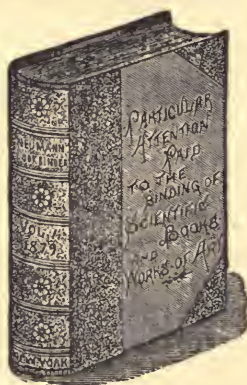 NEUMANN
BOOKBINDER
VOL. 1.
1879
NEW-YORK
PARTICULAR
ATTENTION
PAID
TO THE
BINDING OF
SCIENTIFIC
BOOKS
AND
WORKS OF ART